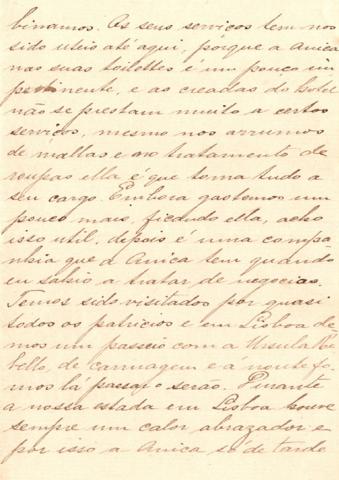 binamos. Os seus serviços tem-nos
sido uteis até aqui, pórque a Anica
nas suas toilettes é um pouco im
pertinente, e as creadas do hotel
não se prestam muito a certos
serviços, mesmo nos arrumos
de mallas e no tratamento de
roupas ella é que toma tudo a
seu cargo. Embora gastemos um
pouco mais, ficando ella, acho
isso util, depois é uma compa
nhia que a Anica tem quando
eu sahio a tratar de negocios.
Temos sido visitados por quasi
todos os patricios e em Lisboa de
mos um passeio com a Ursula Re
bello, de carruagem e á noute fo
mos lá passar o serão. Durante
a nossa estada em Lisboa houve
sempre um calor abrazador e
por isso a Anica só de tarde